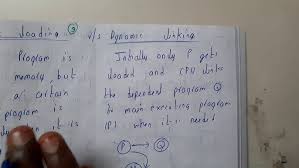 loading v/s Dynamic linking
Program is
memory, but
a certain
program is
it is
Initially only P gets
loaded and CPU links
the dependent program Q
to main executing program
(P) when it is needed
P Q